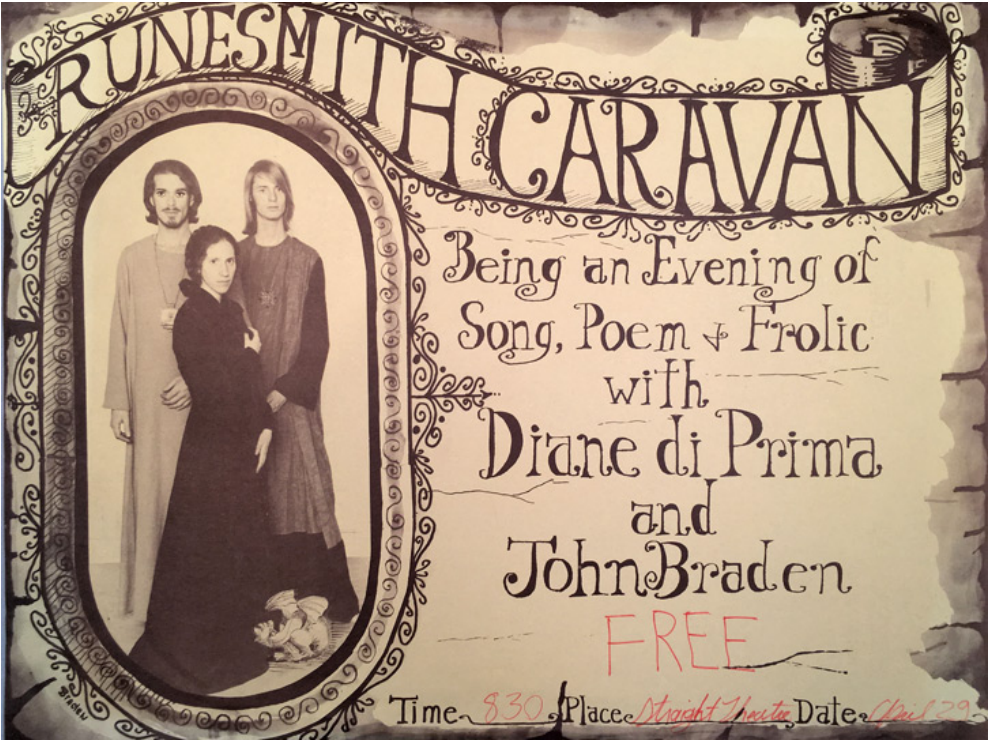 RUNESMITH CARAVAN
Being an Evening of
Song, Poem & Frolic
with
Diane di Prima
and
John Braden
FREE
Time 830 Place Straight Theatre Date April 29
Braden